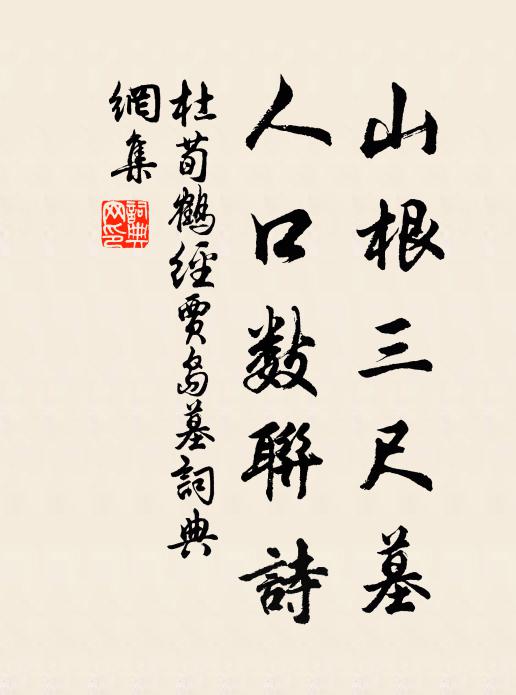 山根三尺墓
人口數聯詩
杜荀鶴經賈島墓詞典
網集
詞典網印